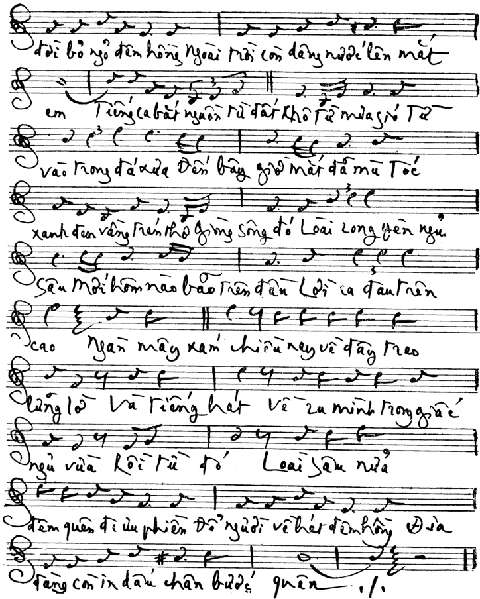 đời bỏ ngỏ đêm hồng Ngoài trời còn dâng nước lên mắt
em Tiếng ca bắt nguồn từ đất khô Từ mưa gió Từ
vào trong đá xưa Đến bây giờ mắt đã mù Tóc
xanh đen vầng trán thơ Dòng sông đó Loài rong yên ngủ
sâu Mới hôm nào bão trên đầu Lời ca đau trên
cao Ngàn mây xám chiều nay về đây treo
lững lờ Và tiếng hát về ru mình trong giấc
ngủ vừa Rồi từ đó Loài sâu nửa
đêm quên đi ưu phiền Để người về hát đêm hồng Địa
đàng còn in dấu chân bước quên ./.